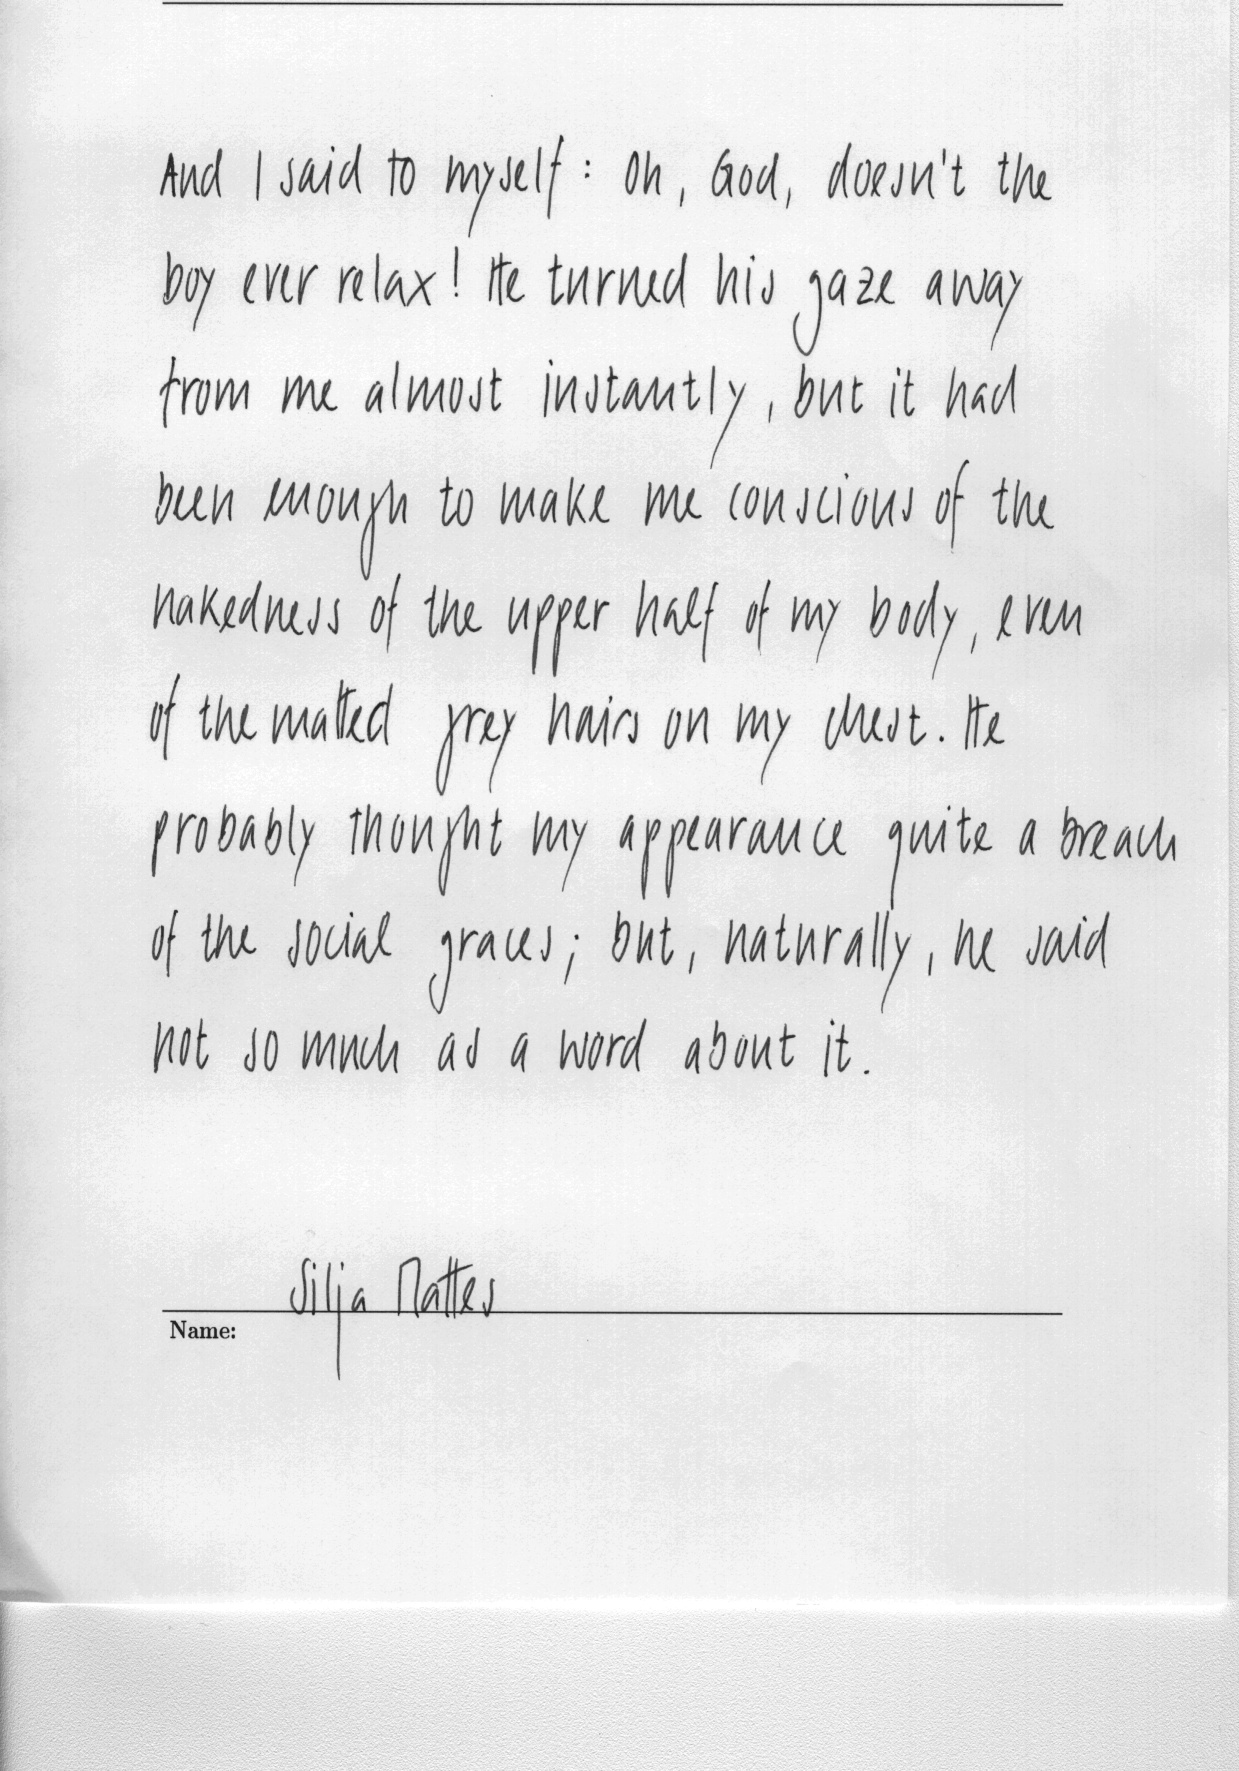 And I said to myself: Oh, God, doesn't the
boy ever relax! He turned his gaze away
from me almost instantly, but it had
been enough to make me conscious of the
nakedness of the upper half of my body, even
of the matted grey hairs on my chest. He
probably thought my appearance quite a breach
of the social graces; but, naturally, he said
not so much as a word about it.
Silja Mattes
Name: